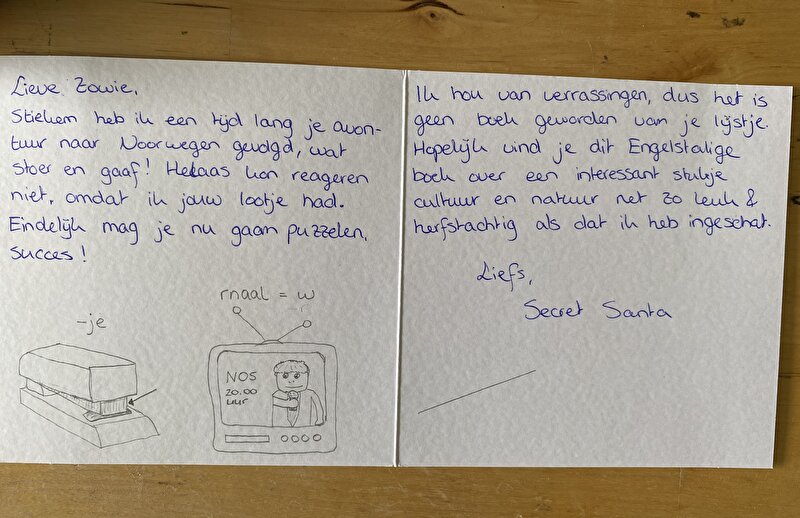 Lieve Zowie,
Stiekem heb ik een tijd lang je avon-
tuur naar Noorwegen gevolgd, wat
stoer en gaaf! Helaas kon reageren
niet, omdat ik jouw lootje had.
Eindelijk mag je nu gaan puzzelen,
succes!
-je
rnaal = w
NOS
20.00
uur
Ik hou van verrassingen, dus het is
geen boek geworden van je lijstje.
Hopelijk vind je dit Engelstalige
boek over een interessant stukje
cultuur en natuur net zo leuk &
herfstachtig als dat ik heb ingeschat.
Liefs,
Secret Santa